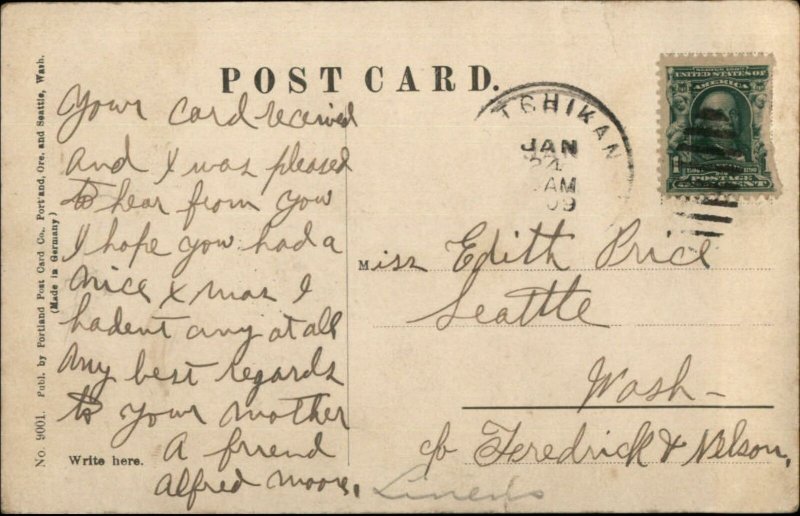 POST CARD.
No. 9001. Publ. by Portland Post Card Co., Portland, Ore. and Seattle, Wash.
(Made in Germany)
Your card received
and I was pleased
to hear from you
I hope you had a
nice Xmas I
hadent any at all
My best regards
to your mother
A friend
Alfred Moore,
Write here.
TCHIKAN
JAN
24
AM
09
UNITED STATES OF
AMERICA
POSTAGE
Miss Edith Price
Seattle
Wash-
c/o Feredrick & Nelson,
Linens